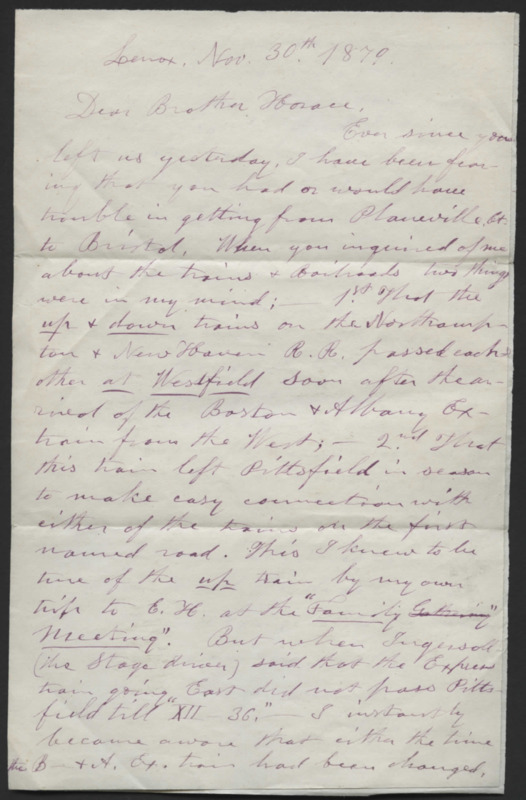 Lenox, Nov. 30.th 1879.
Dear Brother Horace,
Ever since you
left us yesterday, I have been fear-
ing that you had or would have
trouble in getting from Plainville, Ct.
to Bristol. When you inquired of me
about the trains & Railroads two things
were in my mind; – 1st That the
up & down trains on the Northamp-
ton & New Haven R. R. passed each
other at Westfield soon after the ar-
rival of the Boston & Albany Ex-
train from the West; – 2nd That
this train left Pittsfield in season
to make easy connection with
either of the trains on the first
named road. This I knew to be
true of the up train by my own
trip to E. H. at the "Family Gathering"
Meeting". But when Ingersoll
(the Stage driver) said that the Express
train going East did not pass Pitts-
field till "XII – 36." – I instantly
became aware that either the time
the B – & A. Ex. train had been changed,